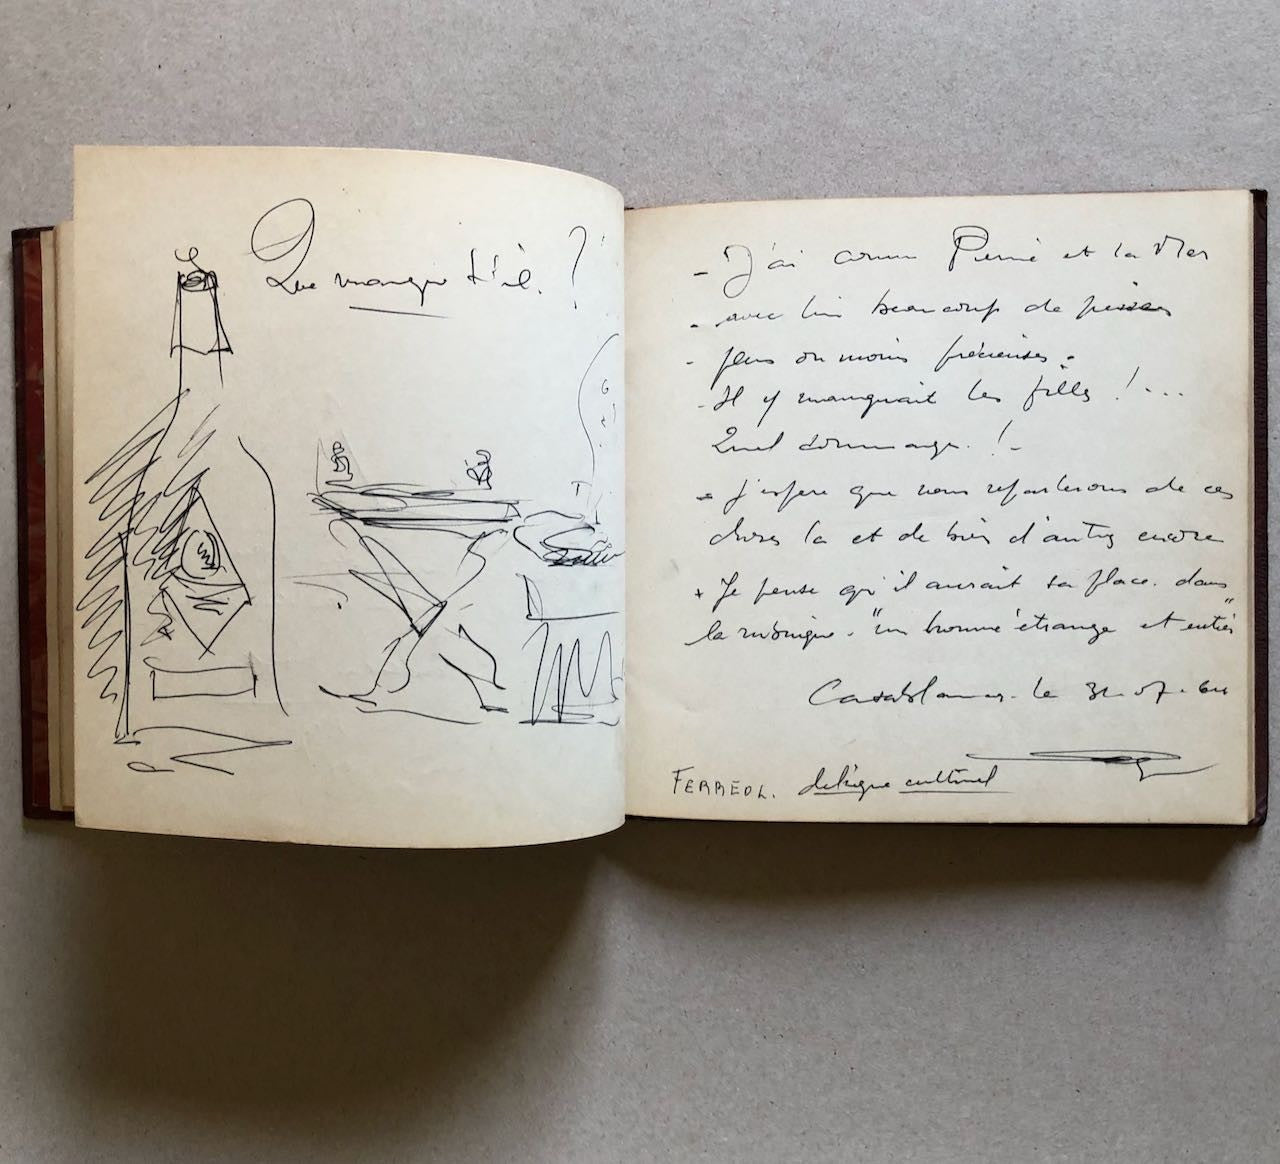 Que manque t'il. ?
- J'ai connu Pierre et la Mer
- avec lui beaucoup de pierres
- plus ou moins précieuses.
- Il y manquait les filles !...
Quel dommage. !-
- J'espère que nous reparlerons de ces
choses la et de bien d'autres encore
+ Je pense qu'il aurait sa place. dans
la rubrique. "un homme étrange et entier"
Casablanca. le 31-07-64
FERREOL. délégué culturel